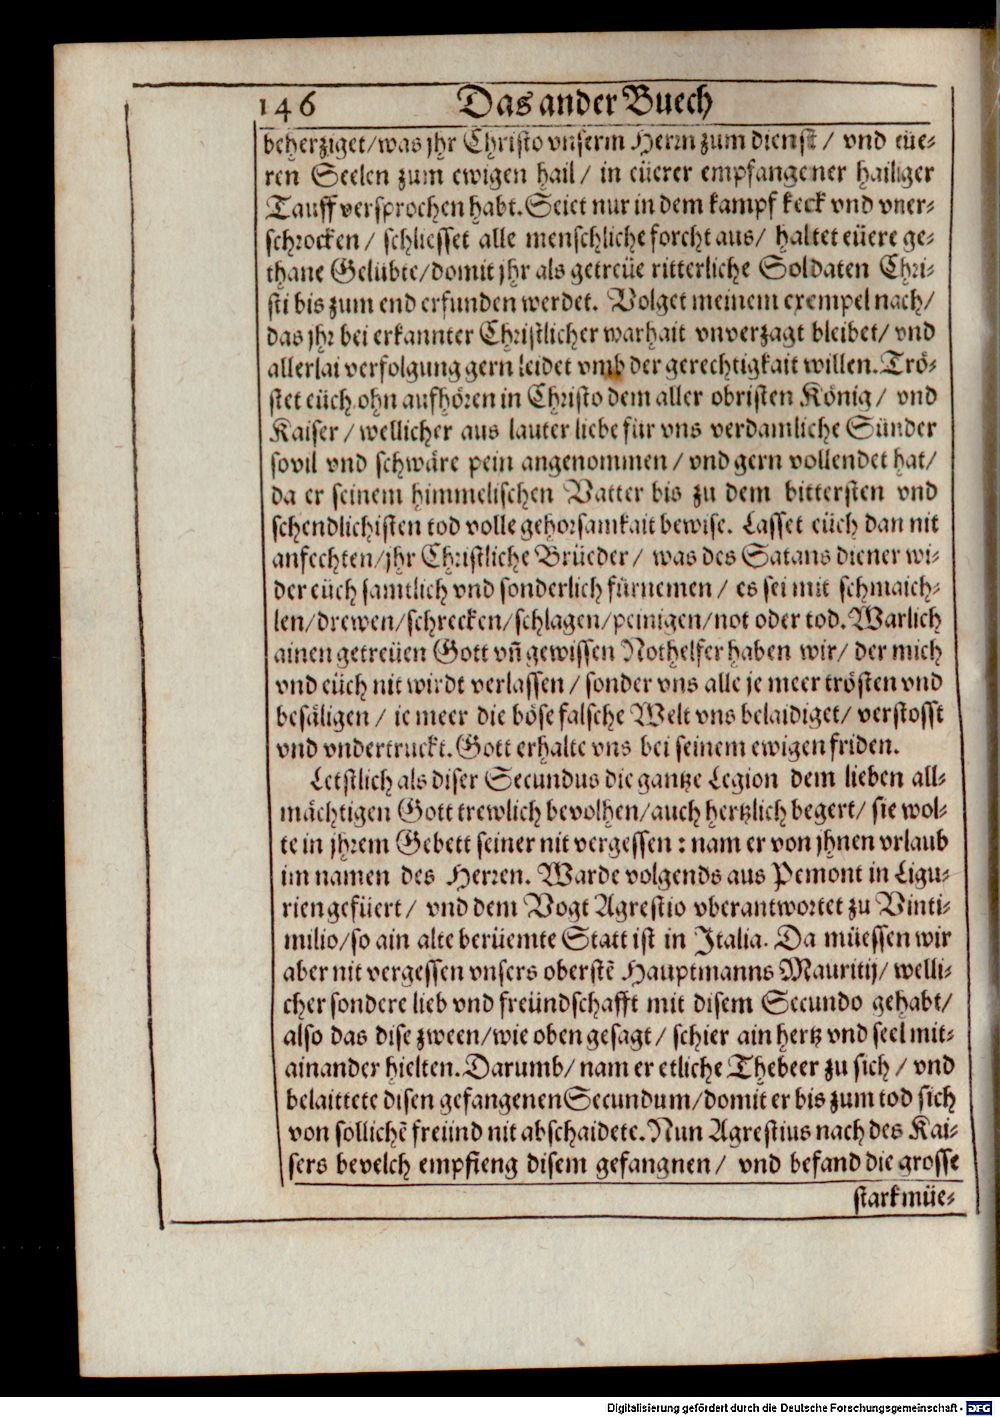 146 Das ander Buech
beherziget/was jhr Christo vnserm Herrn zum dienst/ vnd eüe-
ren Seelen zum ewigen hail/ in eüerer empfangener hailiger
Tauff versprochen habt. Seiet nur in dem kampf keck vnd vner-
schrocken/ schliesset alle menschliche forcht aus/ haltet eüere ge-
thane Gelübte/domit jhr als getreüe ritterliche Soldaten Chri-
sti bis zum end erfunden werdet. Volget meinem exempel nach/
das jhr bei erkannter Christlicher warhait vnverzagt bleibet/ vnd
allerlai verfolgung gern leidet vmb der gerechtigkait willen. Trö-
stet eüch ohn aufhören in Christo dem aller obristen König/ vnd
Kaiser/ wellicher aus lauter liebe für vns verdamliche Sünder
sovil vnd schwäre pein angenommen/ vnd gern vollendet hat/
da er seinem himmelischen Vatter bis zu dem bittersten vnd
schendlichisten tod volle gehorsamkait bewise. Lasset eüch dan nit
anfechten/jhr Christliche Brüeder/ was des Satans diener wi-
der eüch samtlich vnd sonderlich fürnemen/ es sei mit schmaich-
len/drewen/schrecken/schlagen/peinigen/not oder tod. Warlich
ainen getreüen Gott vn̄ gewissen Nothelfer haben wir/ der mich
vnd eüch nit wirdt verlassen/ sonder vns alle je meer trösten vnd
besäligen/ ie meer die böse falsche Welt vns belaidiget/ verstosst
vnd vndertruckt. Gott erhalte vns bei seinem ewigen friden.
Letstlich als diser Secundus die gantze Legion dem lieben all-
mächtigen Gott trewlich bevolhen/auch hertzlich begert/ sie wol-
te in jhrem Gebett seiner nit vergessen: nam er von jhnen vrlaub
im namen des Herren. Warde volgends aus Pemont in Ligu-
rien gefüert/ vnd dem Vogt Agrestio vberantwortet zu Vinti-
milio/so ain alte berüemte Statt ist in Italia. Da müessen wir
aber nit vergessen vnsers oberstē Hauptmanns Mauritij/ welli-
cher sondere lieb vnd freündschafft mit disem Secundo gehabt/
also das dise zween/wie oben gesagt/ schier ain hertz vnd seel mit-
ainander hielten. Darumb/ nam er etliche Thebeer zu sich/ vnd
belaittete disen gefangenen Secundum/domit er bis zum tod sich
von sollichē freünd nit abschaidete. Nun Agrestius nach des Kai-
sers bevelch empfieng disem gefangnen/ vnd befand die grosse
starkmüe-
Digitalisierung gefördert durch die Deutsche Forschungsgemeinschaft - DFG